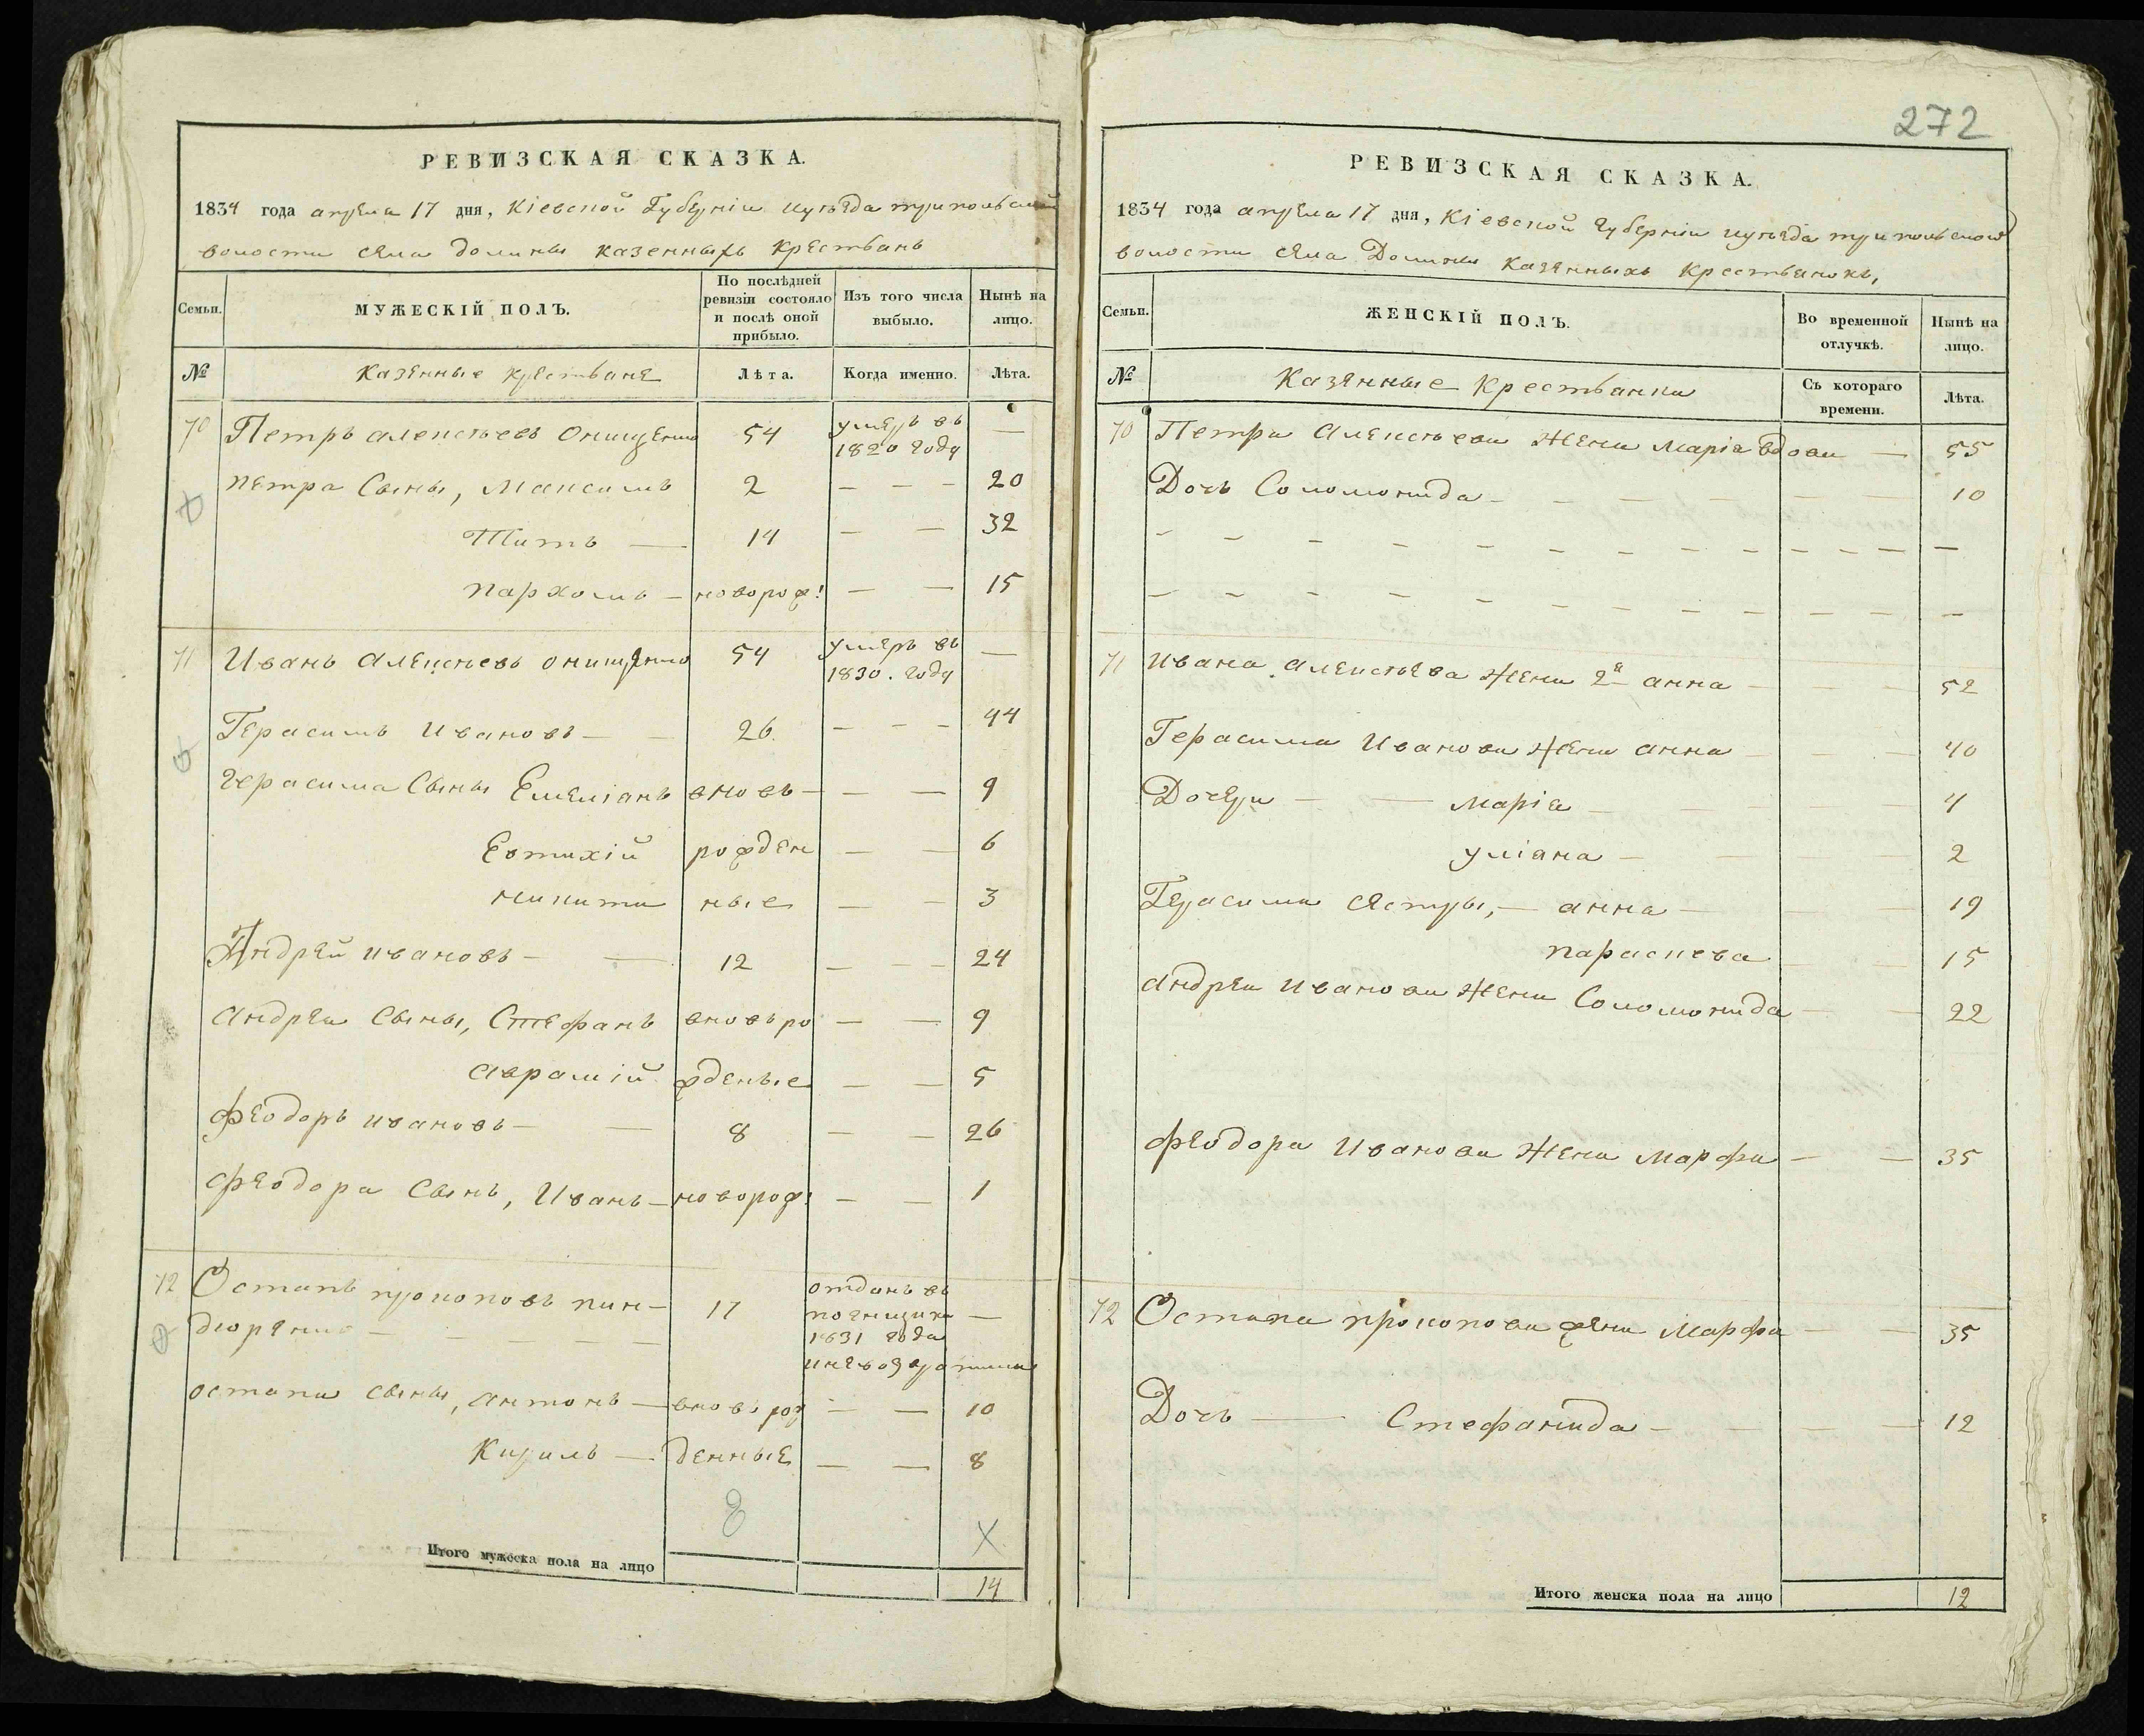 РЕВИЗСКАЯ СКАЗКА.
1834 года апреля 17 дня, Кіевской Губерніи и уѣзда трипольской
волости села долины казенныхъ крестьянъ
Семьи.
МУЖЕСКІЙ ПОЛЪ.
По послѣдней ревизіи состояло и послѣ оной прибыло.
Изъ того числа выбыло.
Нынѣ на лицо.
№ казенные крестьяне Лѣта. Когда именно. Лѣта.
70 Петръ алексѣевъ Онищенко 54 умеръ въ 1820 году —
петра Сыны, Максимъ 2 — — — 20
Титъ — 14 — — 32
пархомъ — новорож: — — 15
71 Иванъ алексѣевъ онищенко 54 умеръ въ 1830. году —
Герасимъ Ивановъ — — 26 — — — 44
Герасима Сыны Емеліанъ вновь — — — 9
Евтихій рожден — — 6
никита ные — — 3
Андрей ивановъ — — 12 — — — 24
андрея сыны, Стефанъ вновь ро — — 9
аврамій жденые — — 5
феодоръ ивановъ — — 8 — — 26
феодора Сынъ, Иванъ — новорож: — — 1
72 Остапъ прокоповъ пин-
дюренко — — — — 17 отданъ въ
1831 года
—
остапа сыны, антонъ — вновь рож — — 10
Кирилъ — денные — — 8
8 X
Итого мужеска пола на лицо 14
272
РЕВИЗСКАЯ СКАЗКА.
1834 года апреля 17 дня, Кіевской Губерніи и уѣзда трипольской
волости села Долины Казенныхъ Крестьянокъ,
Семьи.
ЖЕНСКІЙ ПОЛЪ.
Во временной отлучкѣ.
Нынѣ на лицо.
№ Казенные Крестьянки Съ котораго времени. Лѣта.
70 Петра Алексѣева Жена Марія вдова — 55
Дочь Соломонида — — — — — 10
— — — — — — — — — — — — —
— — — — — — — — — — — — —
71 Ивана алексѣева Жена 2я анна — — — 52
Герасима Иванова Жена анна — — — 40
Дочери — — марія — — — — 4
уліана — — — — 2
Герасима сестры, — анна — — — 19
параскева — — 15
андрея Иванова Жена Соломонида — — 22
феодора Иванова Жена Марфа — — 35
72 Остапа прокопова жена Марфа — — 35
Дочь — Стефанида — — — — 12
Итого женска пола на лицо 12